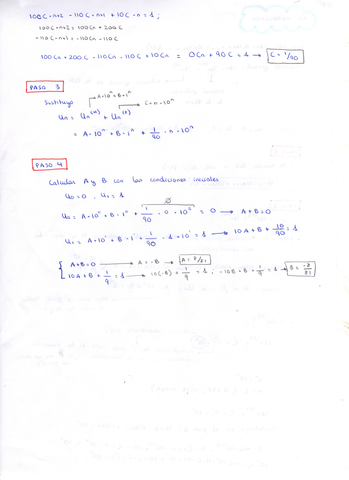 100C·n+2 - 110C·n+1 + 10C·n = 1 ;
100C·n+2 = 100Cn + 200C
-110C·n+1 = -110Cn - 110C
100Cn + 200C - 110Cn - 110C + 10Cn = 0Cn + 90C = 1 → C = 1/90
PASO 3
Sustituyo → A·10ⁿ + B·1ⁿ → C·n·10ⁿ
Un = Un⁽ʰ⁾ + Un⁽ᵖ⁾
= A·10ⁿ + B·1ⁿ + 1/90 · n · 10ⁿ
PASO 4
Calculas A y B con las condiciones iniciales
U₀ = 0 , U₁ = 1
U₀ = A·10⁰ + B·1⁰ + 1/90 · 0 · 10⁰ = 0 → A+B=0
U₁ = A·10¹ + B·1¹ + 1/90 · 1 · 10¹ = 1 → 10A + B + 10/90 = 1
A+B=0 → A=-B → A = 8/81
10A + B + 1/9 = 1 → 10(-B) + 1/9 = 1 ; -10B + B + 1/9 = 1 → B = -8/81